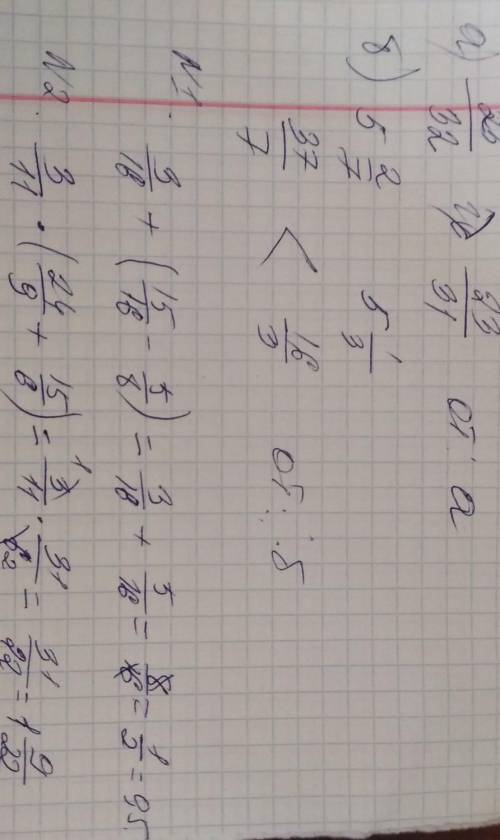 а) 20/32 и 23/31 от: а
б) 5 2/7 5 1/3
37/7 < 16/3 от: б
N1. 3/16 + (15/16 - 5/8) = 3/16 + 5/16 = 8/16 = 1/2 = 95
N2. 3/11 · (24/9 + 15/6) = 3/11 · 31/6 2 = 31/22 = 1 9/22